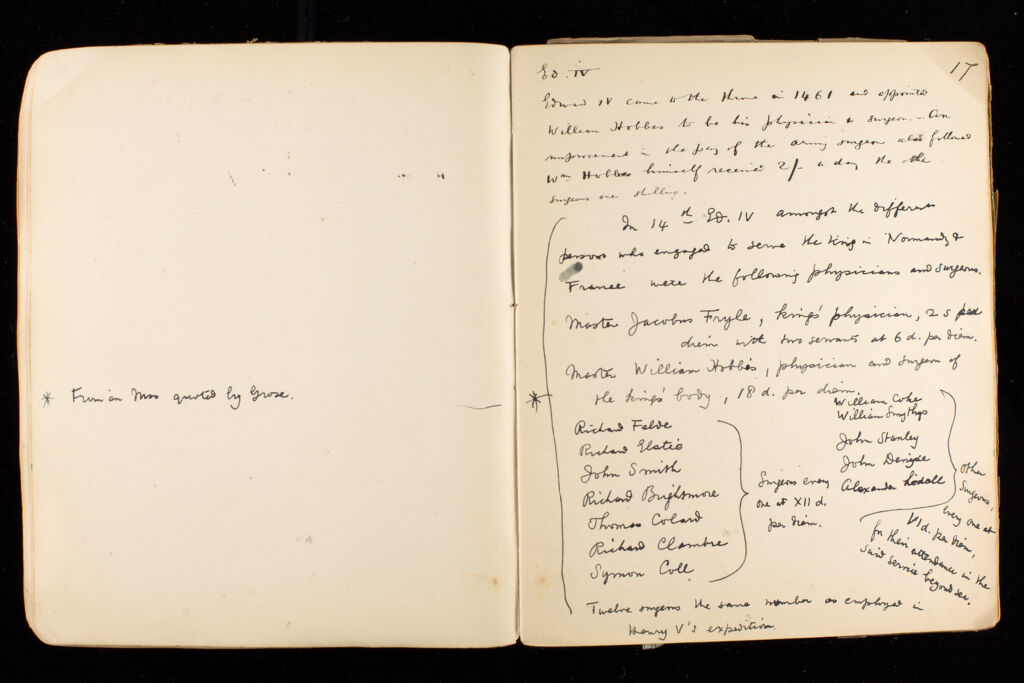 * From an Mss quoted by Grose.
17
Ed. IV
Edward IV came to the throne in 1461 and appointed
William Hobbes to be his physician & surgeon. - An
improvement in the pay of the army surgeon also followed
Wm Hobbes himself received 2/- a day the other
surgeons one shilling.
In 14th Ed. IV amongst the different
persons who engaged to serve the King in Normandy &
France were the following physicians and surgeons.
Master Jacobus Fryle, King's physician, 2 s per
diem with two servants at 6 d. per diem.
* Master William Hobbes, physician and surgeon of
the King's body, 18 d. per diem.
Richard Felde
Richard Elstie
John Smith
Richard Brightmore
Thomas Colard
Richard Clambre
Symon Coll
Surgeons every
one at XII d.
per diem.
William Coke
William Smythys
John Stanley
John Denyse
Alexander Ledell
Other
Surgeons,
every one at
VI d. per diem,
for their attendance in the
said service beyond sea.
Twelve surgeons the same number as employed in
Henry V's expedition.